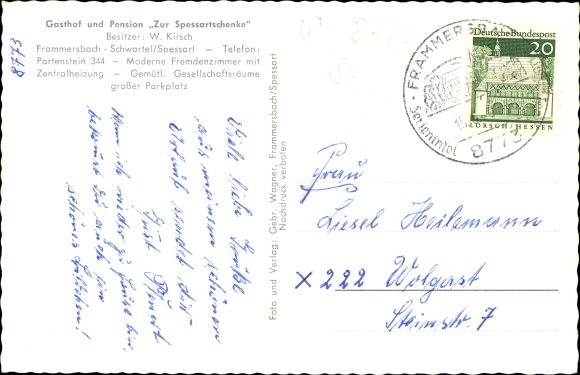 Gasthof und Pension „Zur Spessartschenke"
Besitzer: W. Kirsch
Frammersbach - Schwartel/Spessart — Telefon:
Partenstein 344 — Moderne Fremdenzimmer mit
Zentralheizung — Gemütl. Gesellschaftsräume
großer Parkplatz
8773
Viele liebe Grüße
aus meinem schönen
Urlaub sendet dir
Wenn ich wieder zu Hause bin,
bekommst du auch ein
schönes
Foto und Verlag: Gebr. Wagner, Frammersbach/Spessart
Nachdruck verboten
FRAMMERSBA
8773
Deutsche Bundespost
20
LORSCH/HESSEN
Frau
Liesel Heilemann
X 222 Wolgast
Steinstr. 7